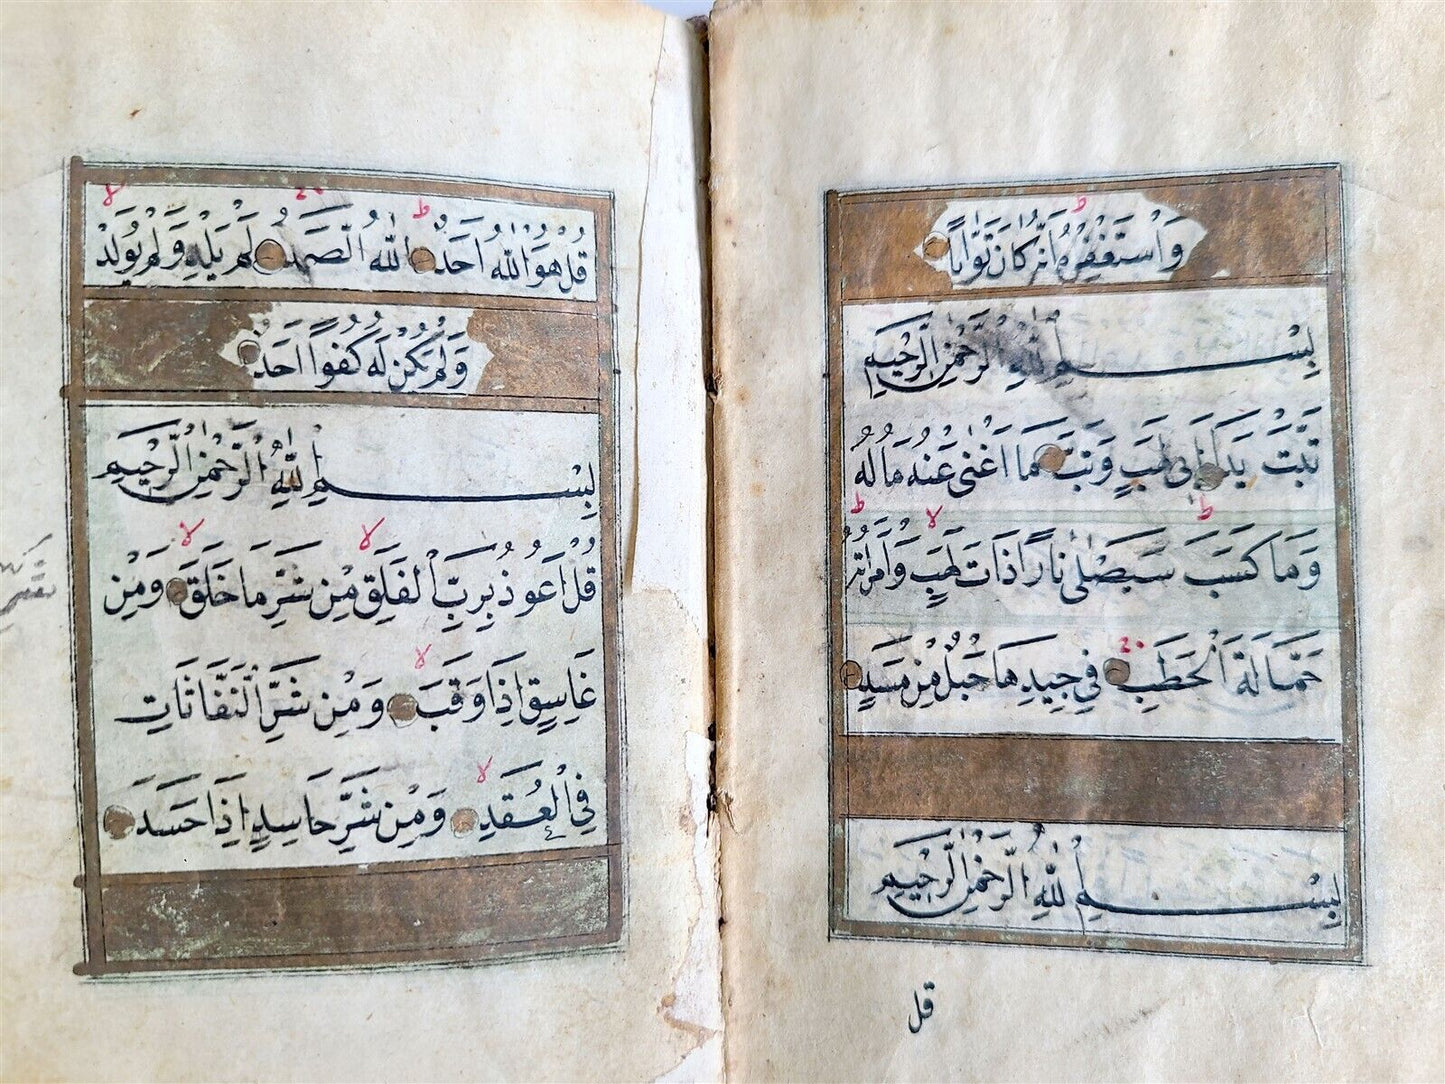 وَاسْتَغْفِرْهُ اِنَّهُ كَانَ تَوَّابًا
بِسْمِ اللّٰهِ الرَّحْمٰنِ الرَّحٖيمِ
تَبَّتْ يَدَا اَبٖى لَهَبٍ وَتَبَّ مَا اَغْنٰى عَنْهُ مَا لُهُ
وَمَا كَسَبَ سَيَصْلٰى نَارًا ذَاتَ لَهَبٍ وَامْرَاَتُهُ
حَمَّالَةَ الْحَطَبِ فٖي جٖيدِهَا حَبْلٌ مِنْ مَسَدٍ
بِسْمِ اللّٰهِ الرَّحْمٰنِ الرَّحٖيمِ
قل
قُلْ هُوَ اللّٰهُ اَحَدٌ اَللّٰهُ الصَّمَدُ لَمْ يَلِدْ وَلَمْ يُولَدْ
وَلَمْ يَكُنْ لَهُ كُفُوًا اَحَدٌ
بِسْمِ اللّٰهِ الرَّحْمٰنِ الرَّحٖيمِ
قُلْ اَعُوذُ بِرَبِّ الْفَلَقِ مِنْ شَرِّ مَا خَلَقَ وَمِنْ
غَاسِقٍ اِذَا وَقَبَ وَمِنْ شَرِّ النَّفَّاثَاتِ
فِي الْعُقَدِ وَمِنْ شَرِّ حَاسِدٍ اِذَا حَسَدَ